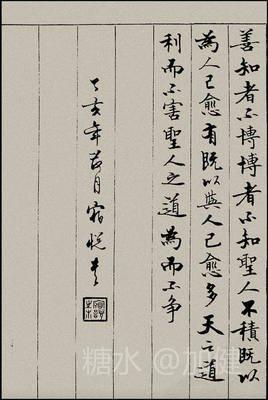 善知者不博博者不知聖人不積既以
為人已愈有既以與人已愈多天之道
利而不害聖人之道為而不争
丁亥年月宿悦
糖水 @加健